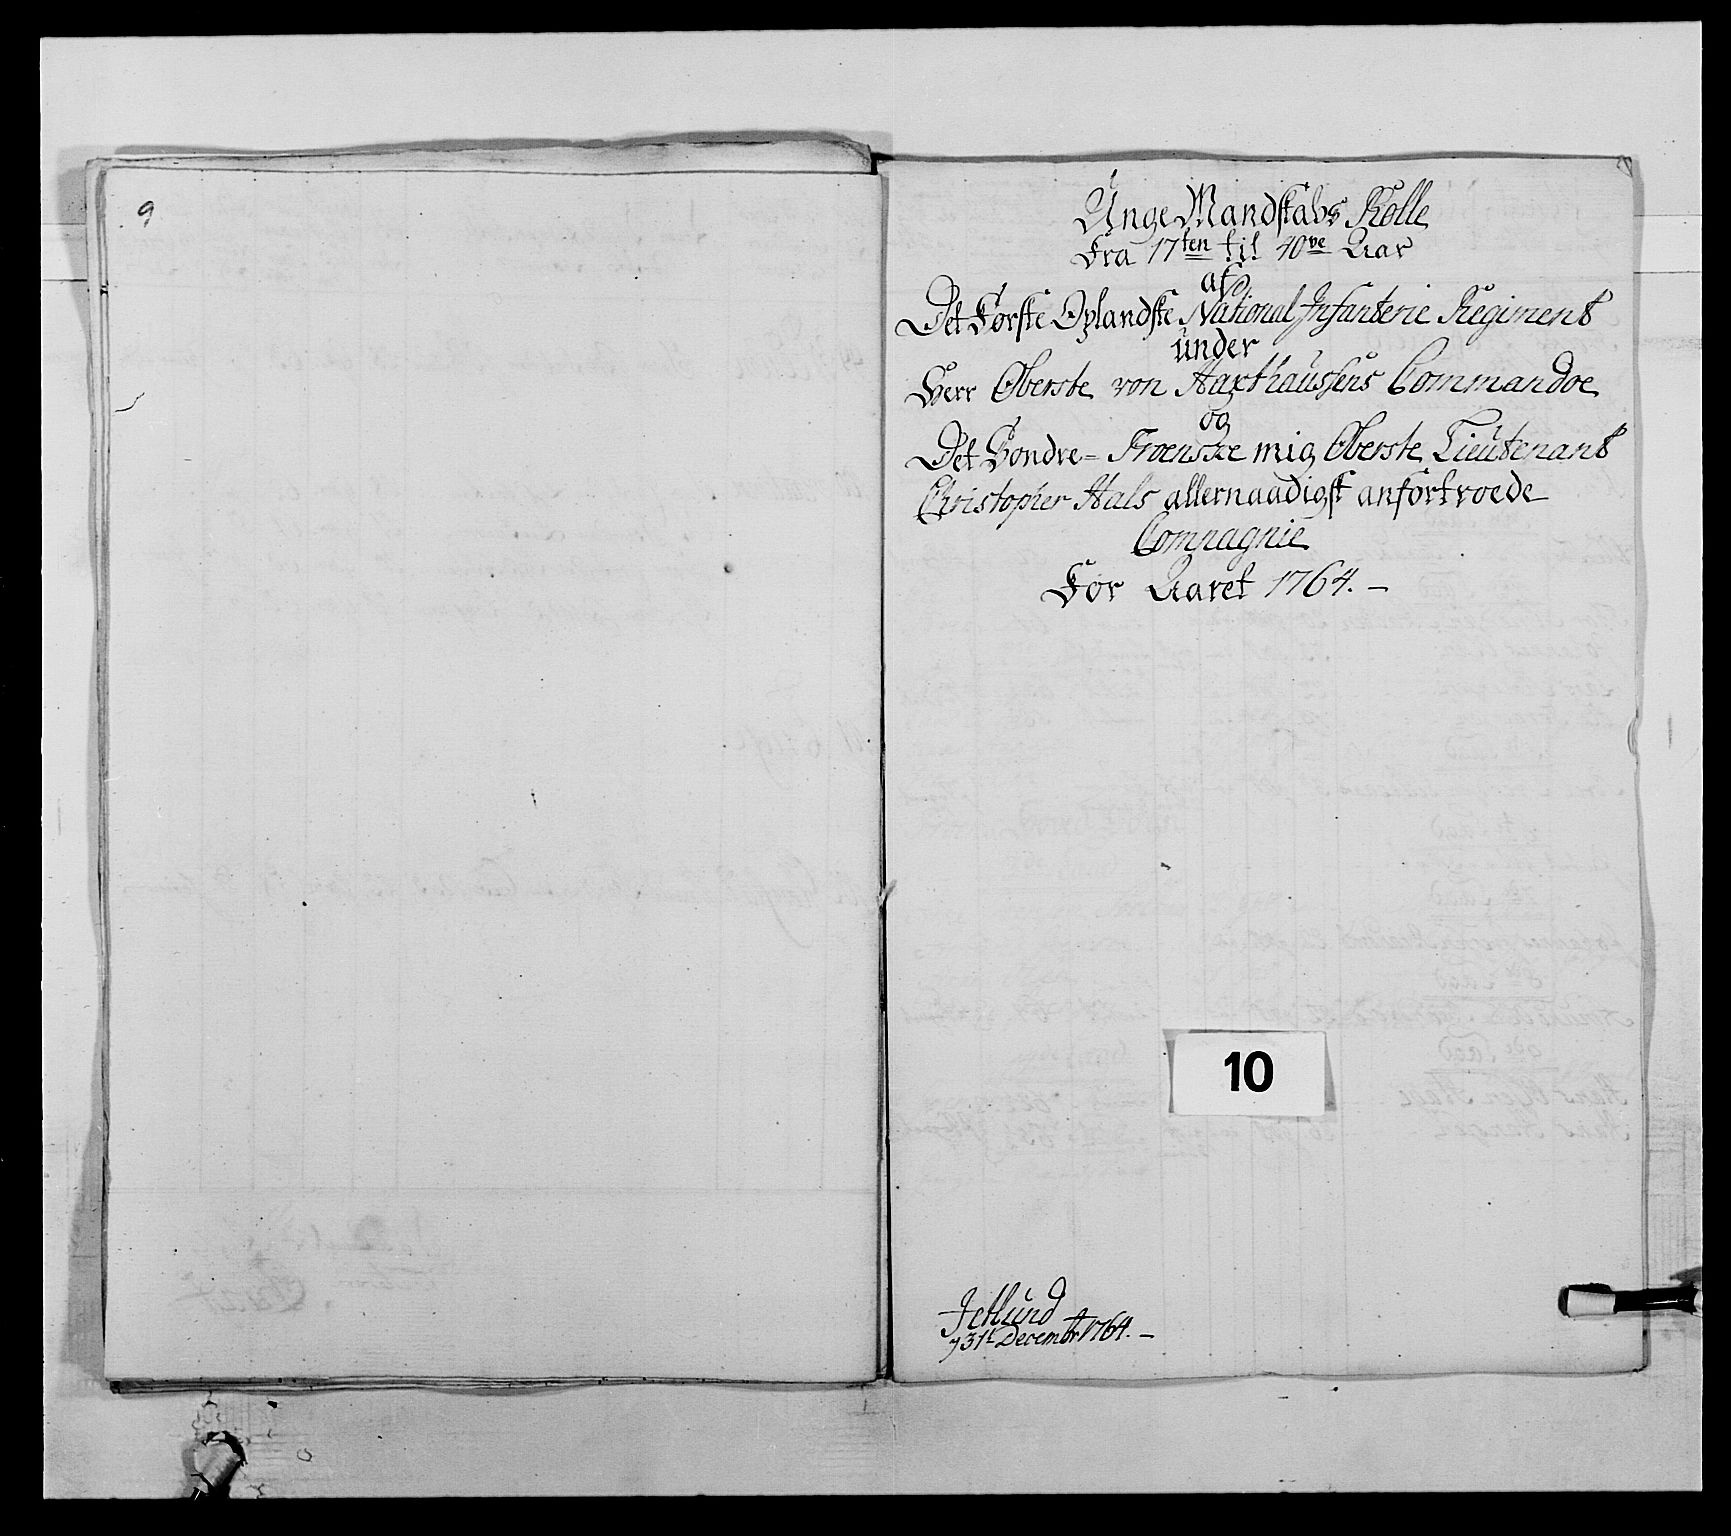 9
Unge Mandskabs Rolle
Fra 17ten til 40ve Aar
af
Det Første Oplandske National Infanterie Regiment
under
Herr Oberste von Haxthausens Commandoe
og
Det Søndre= Froenske mig Oberste Lieutenant
Christopher Hals allernaadigst anfortroede
Compagnie
For Aaret 1764. –
10
Jetlund
d 31t Decembr 1764. –